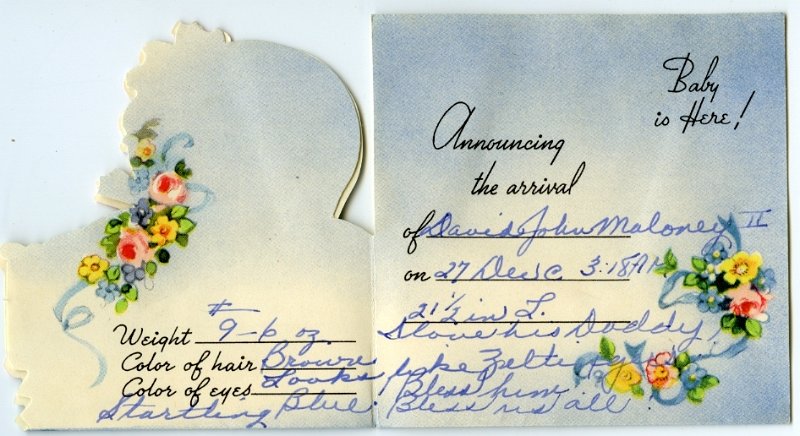 Weight # 9-6 oz.
Color of hair Brown
Color of eyes Looks
Startling Blue
Baby
is Here!
Announcing
the arrival
of David John Maloney II
on 27 Dec 3:18 AM
21 1/2 in L.
his Daddy,
like
Bless him
Bless us all